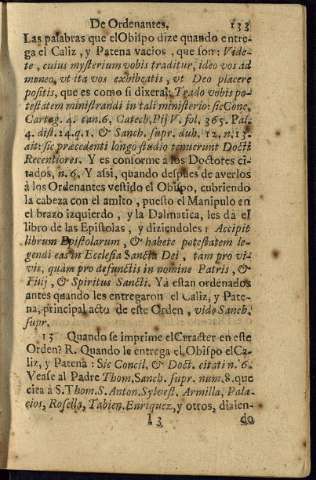 De Ordenantes. 133
Las palabras que el Obispo dize quando entre-
ga el Caliz, y Patena vacios, que son: Vide-
te, cuius mysterium vobis traditur, ideo vos ad
moneo, vt ita vos exhibeatis, vt Deo placere
positis, que es como si dixera: Trado vobis po-
testatem ministrandi in tali ministerio: sic Conc.
Cartag. 4. can. 6. Catech. Pij V. fol. 365. Pal.
4. dist. 24. q. 1. & Sanch. supr. dub. 12. n. 13.
ait: sic præcedenti longo studio tenuerunt Docti
Recentiores. Y es conforme a los Doctotes ci-
tados, n. 6. Y assi, quando despues de averlos
à los Ordenantes vestido el Obispo, cubriendo
la cabeza con el amito, puesto el Manipulo en
el brazo izquierdo, y la Dalmatica, les dà el
libro de las Epistolas, y diziendoles: Accipit
librum Epistolarum, & habete potestatem le-
gendi eas in Ecclesia Sancta Dei, tam pro vi-
vis, quàm pro defunctis in nomine Patris, &
Filij, & Spiritus Sancti. Ya estan ordenados
antes quando les entregaron el Caliz, y Pate-
na, principal acto de este Orden, vide Sanch.
supr.
15 Quando se imprime el Caracter en este
Orden? R. Quando le entrega el Obispo el Ca-
liz, y Patena: Sic Concil. & Doct. citati n. 6.
Vease al Padre Thom. Sanch. supr. num. 8. que
cita à S. Thom. S. Anton. Sylvest. Armilla, Pala-
cios, Rosella, Tabien. Enriquez, y otros, dizien-
I 3 do